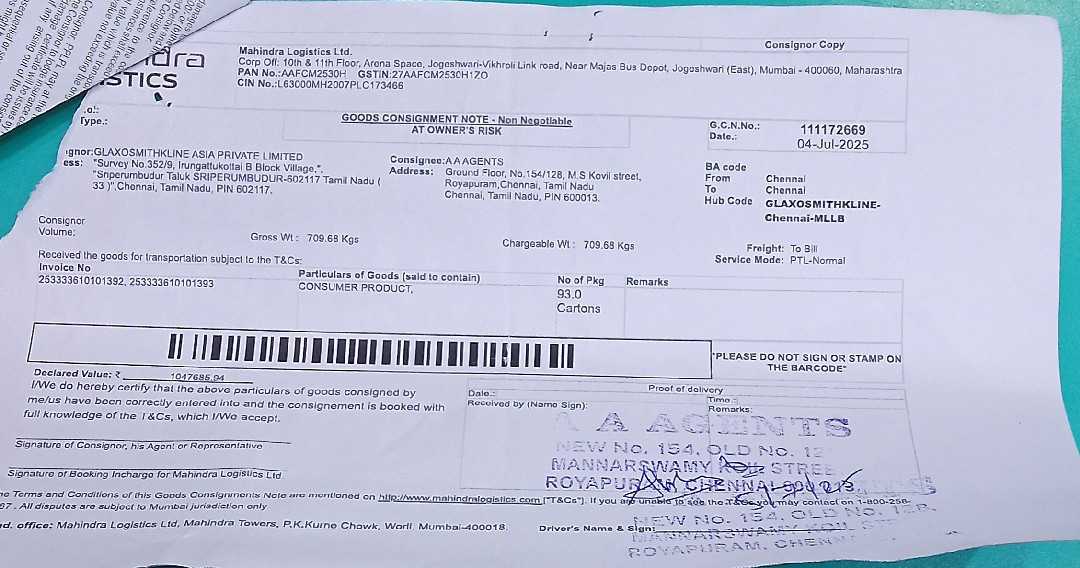 Consignor Copy
dra
STICS
Mahindra Logistics Ltd.
Corp Off: 10th & 11th Floor, Arena Space, Jogeshwari-Vikhroli Link road, Near Majas Bus Depot, Jogeshwari (East), Mumbai - 400060, Maharashtra
PAN No.:AAFCM2530H GSTIN:27AAFCM2530H1ZO
CIN No.:L63000MH2007PLC173466
GOODS CONSIGNMENT NOTE - Non Negotiable
AT OWNER'S RISK
Type.:
G.C.N.No.: 111172669
Date.: 04-Jul-2025
ignor:GLAXOSMITHKLINE ASIA PRIVATE LIMITED
ess: "Survey No.352/9, Irungattukottai B Block Village,".
"Sriperumbudur Taluk SRIPERUMBUDUR-602117 Tamil Nadu (
33 )",Chennai, Tamil Nadu, PIN 602117.
Consignee:A A AGENTS
Address: Ground Floor, No.154/128, M.S Kovil street,
Royapuram,Chennai, Tamil Nadu
Chennai, Tamil Nadu, PIN 600013.
BA code
From Chennai
To Chennai
Hub Code GLAXOSMITHKLINE-
Chennai-MLLB
Consignor
Volume:
Gross Wt : 709.68 Kgs
Chargeable Wt : 709.68 Kgs
Freight: To Bill
Service Mode: PTL-Normal
Received the goods for transportation subject to the T&Cs:
Invoice No Particulars of Goods (said to contain) No of Pkg Remarks
253333610101392, 253333610101393 CONSUMER PRODUCT, 93.0
Cartons
*PLEASE DO NOT SIGN OR STAMP ON
THE BARCODE*
Declared Value: ₹ 1047685.94
I/We do hereby certify that the above particulars of goods consigned by
me/us have been correctly entered into and the consignement is booked with
full knowledge of the T&Cs, which I/We accept.
Proof of delivery
Date.: Time.:
Received by (Name Sign): Remarks:
A AGENTS
NEW No. 154, OLD No. 12
MANNARSWAMY KOIL STREE
ROYAPURAM, CHENNAI-600 013.
Signature of Consignor, his Agent or Representative
Signature of Booking Incharge for Mahindra Logistics Ltd
Terms and Conditions of this Goods Consignments Note are mentioned on http://www.mahindralogistics.com ("T&Cs"). If you are unable to see the T&Cs you may contact on 1-800-258-
67. All disputes are subject to Mumbai jurisdiction only
d. office: Mahindra Logistics Ltd, Mahindra Towers, P.K.Kurne Chowk, Worli, Mumbai-400018.
Driver's Name & Sign:
NEW No. 154, OLD No. 128,
MANNARSWAMY KOIL ST
ROYAPURAM, CHENN